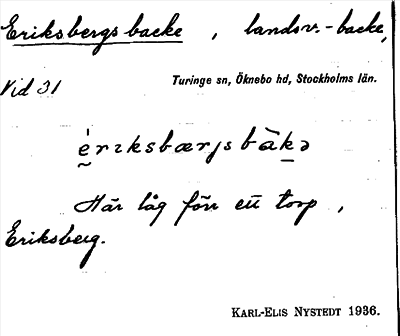 Eriksbergs backe, landsv.-backe,
Vid 31
Turinge sn, Öknebo hd, Stockholms län.
é̱rɪksbærjsbàḵə
Här låg förr ett torp,
Eriksberg.
KARL-ELIS NYSTEDT 1936.